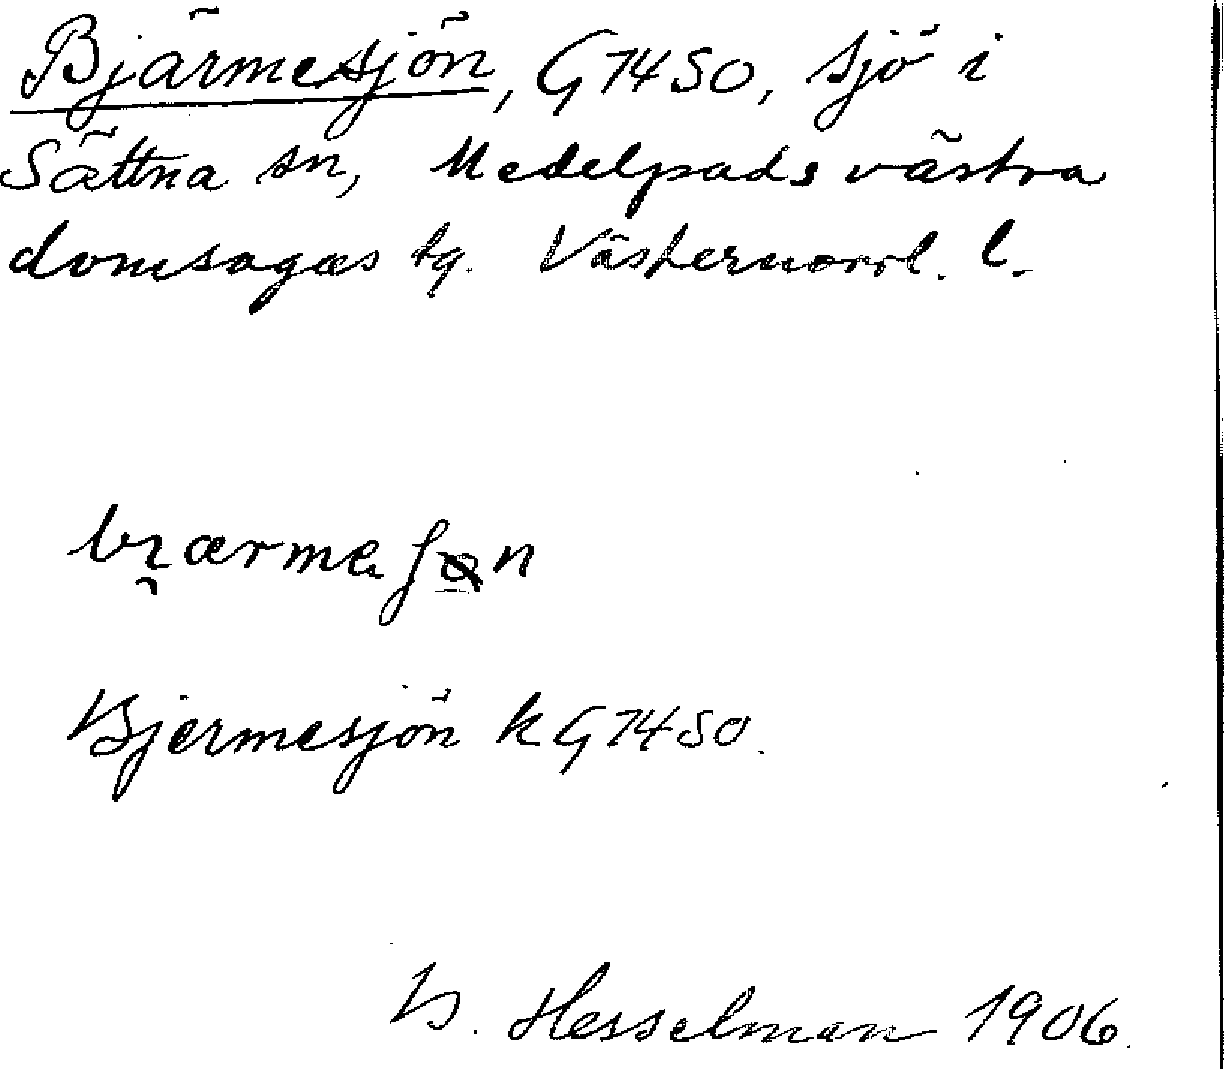 Bjärmesjön, G7450, sjö i
Sättna sn, Medelpads västra
domsagas tg. Västernorrl. l.
Bjermesjön k G7450.
B. Hesselman 1906.